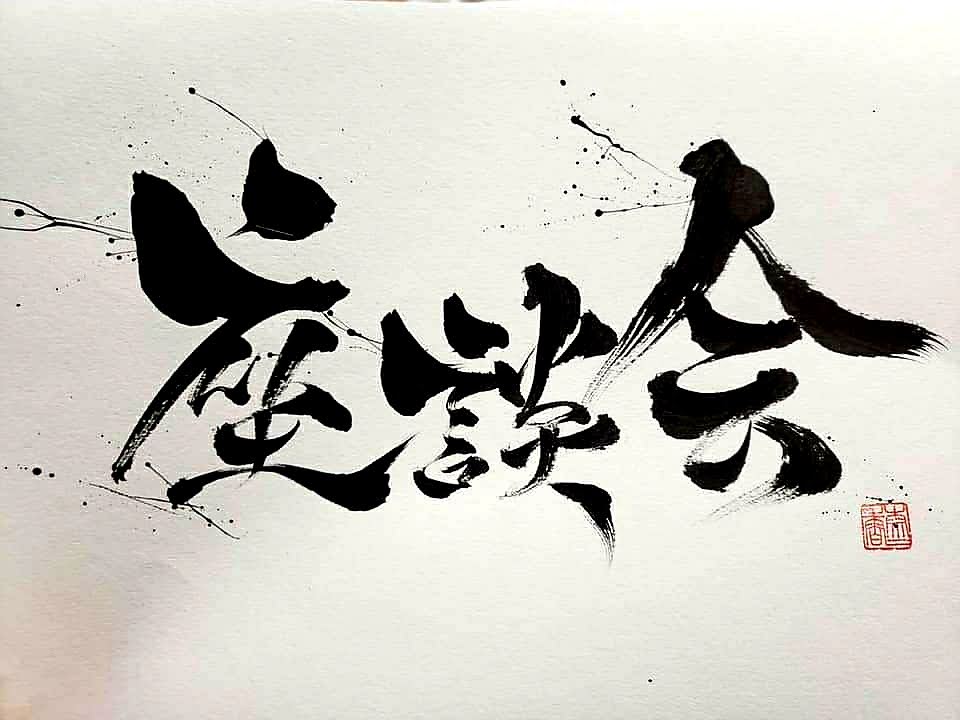 座談会